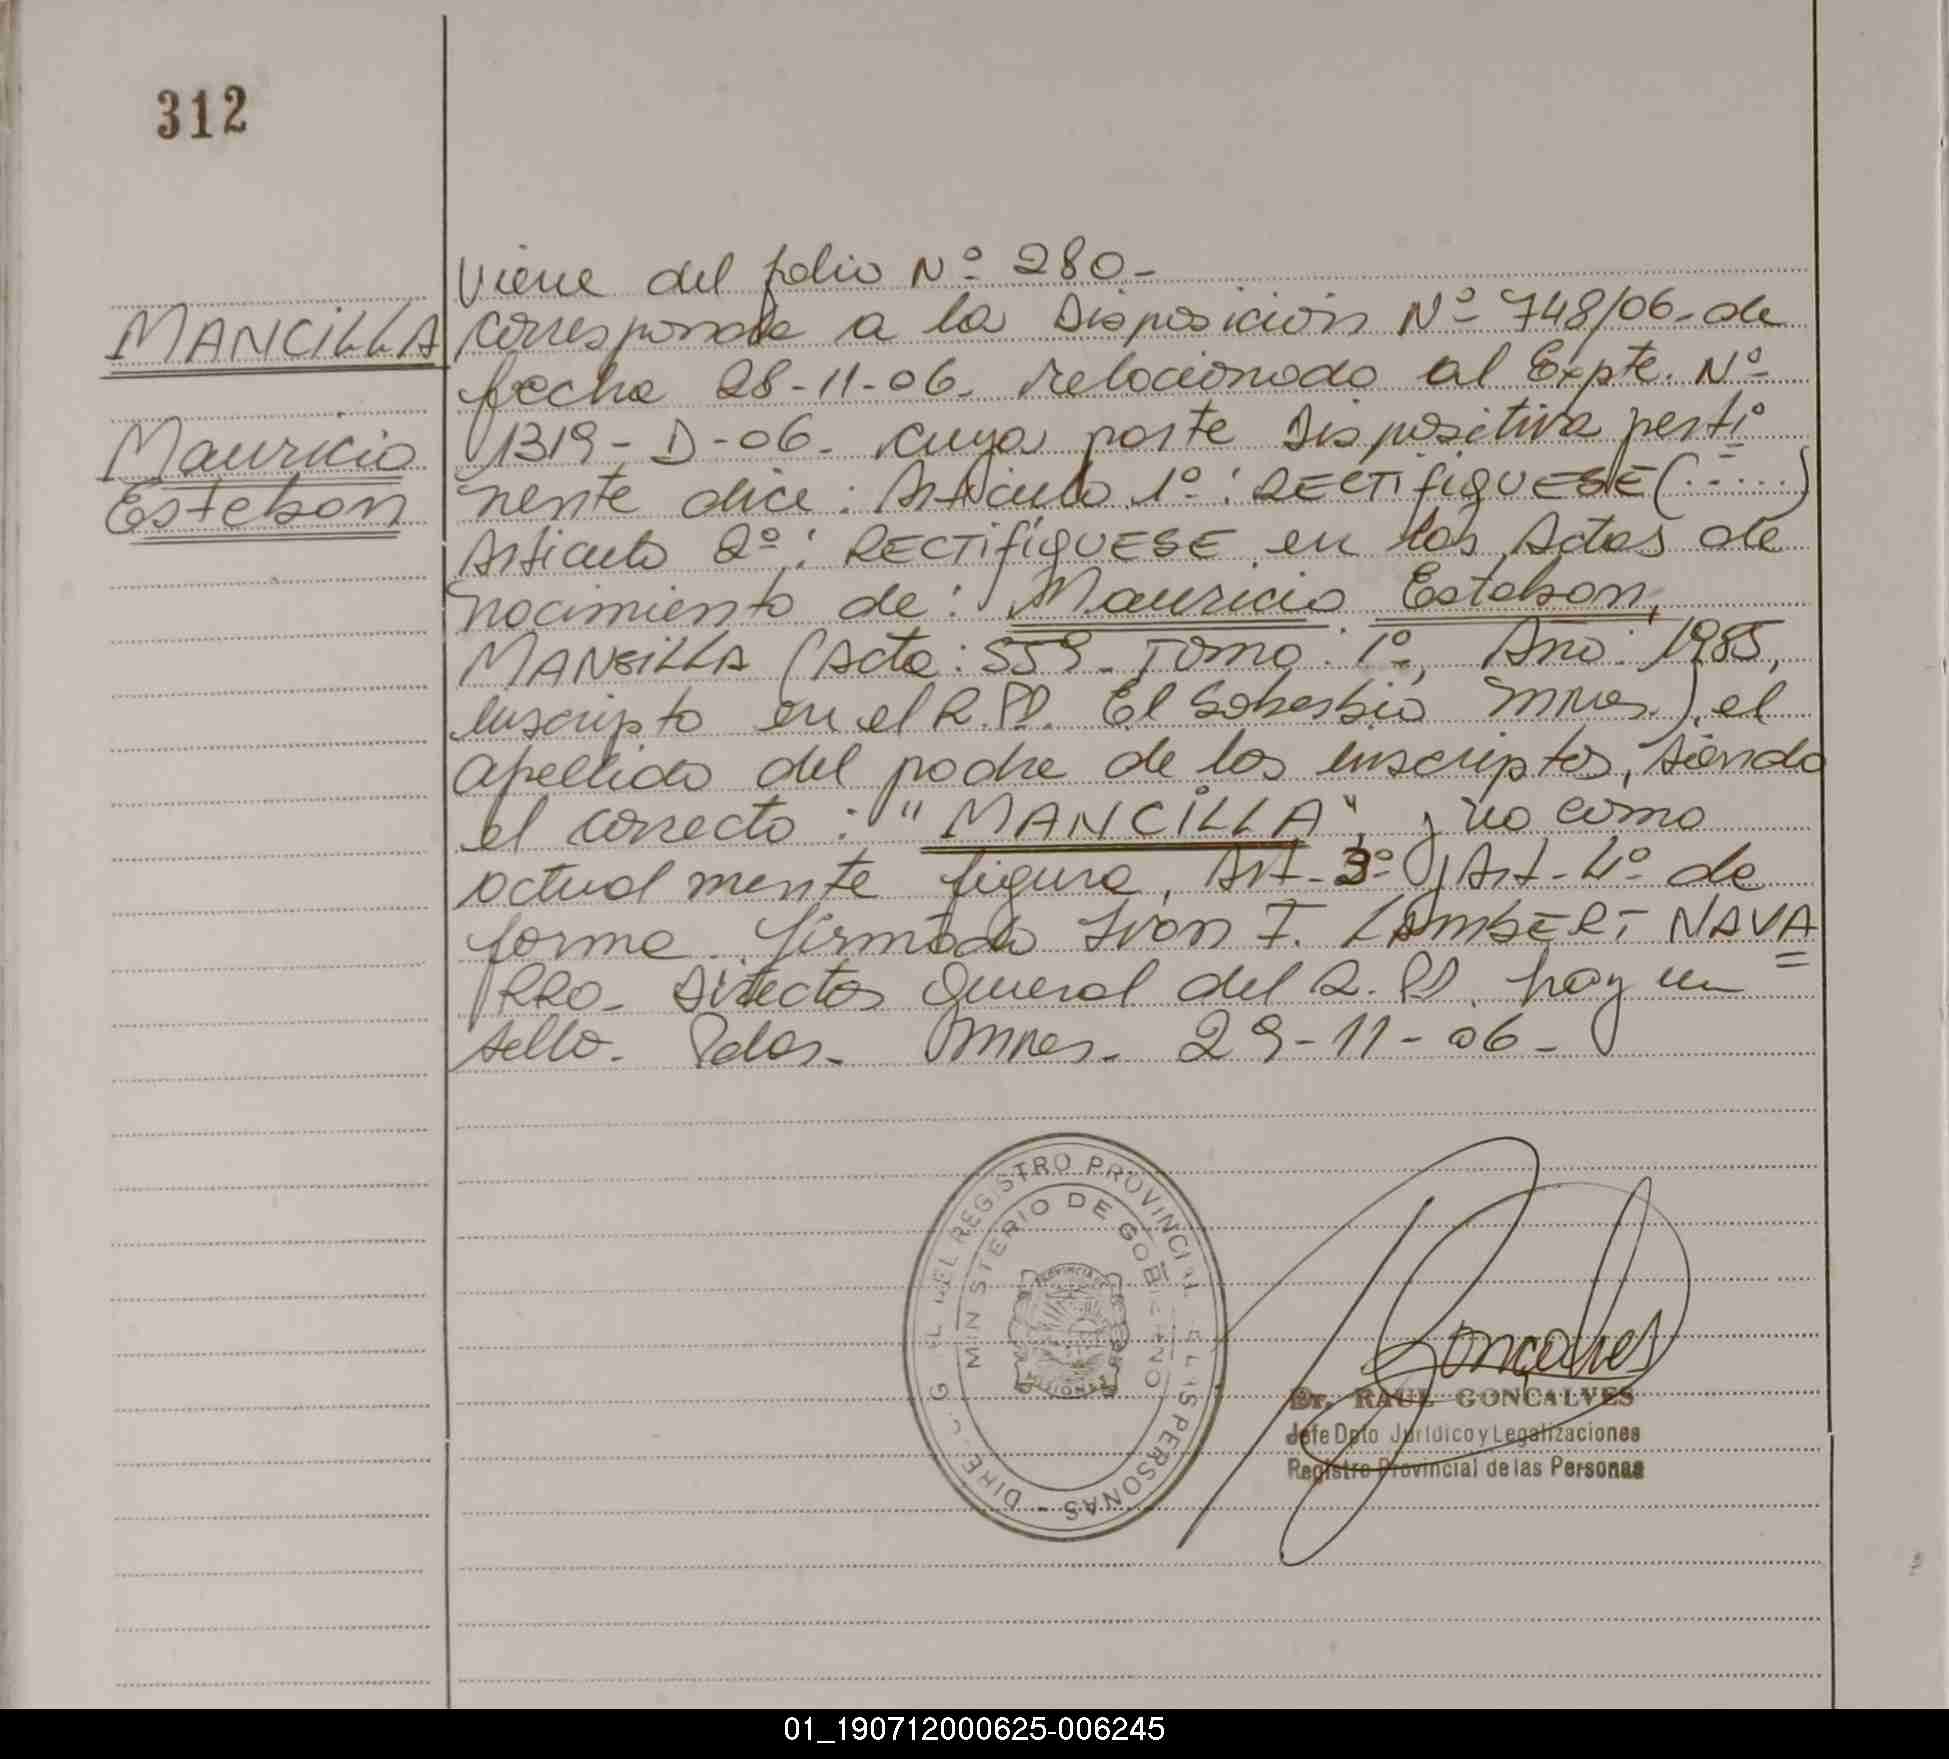 312
MANCILLA
Mauricio
Esteban
Viene del folio Nº 280-
corresponde a la Disposición Nº 748/06- de
fecha 28-11-06- relacionado al Expte. Nº
1319- D-06- cuya parte Dispositiva perti=
nente dice: Articulo 1º: RECTIFIQUESE (.....)
Articulo 2º: RECTIFIQUESE en las Actas de
nacimiento de: Mauricio Esteban,
MANSILLA (Acta: 559- Tomo: 1º, Año: 1985,
inscripto en el R.P. El Soberbio Mnes.), el
apellido del padre de los inscriptos, siendo
el correcto: "MANCILLA", y no como
actualmente figura, Art- 3º y Art- 4º de
forma. firmado Iván F. LAMBERT NAVA=
RRO- Director General del R.P. hay un
sello- Pdas- Mnes- 29-11-06-
DIREC. G EL DEL REGISTRO PROVINCIAL E L S PERSONAS -
MINISTERIO DE GOBIERNO
PROVINCIA DE
MISIONES
Goncalves
Dr. RAUL GONCALVES
Jefe Dpto Jurídico y Legalizaciones
Registro Provincial de las Personas
01_190712000625-006245